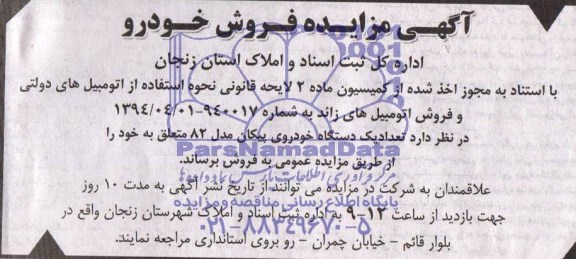 آگهی مزایده فروش خودرو
اداره کل ثبت اسناد و املاک استان زنجان
با استناد به مجوز اخذ شده از کمیسیون ماده ۲ لایحه قانونی نحوه استفاده از اتومبیل های دولتی
و فروش اتومبیل های زائد به شماره ۹۴۰۰۱۷-۱۳۹۴/۰۴/۰۱
در نظر دارد تعدادیک دستگاه خودروی پیکان مدل ۸۲ متعلق به خود را
ParsNamadData
از طریق مزایده عمومی به فروش برساند.
علاقمندان به شرکت در مزایده می توانند از تاریخ نشر آگهی به مدت ۱۰ روز
پایگاه اطلاع رسانی مناقصه و مزایده
جهت بازدید از ساعت ۱۲-۹ به اداره ثبت اسناد و املاک شهرستان زنجان واقع در
۰۲۱-۸۸۳۴۹۶۷۰-۵
بلوار قائم - خیابان چمران - رو بروی استانداری مراجعه نمایند.